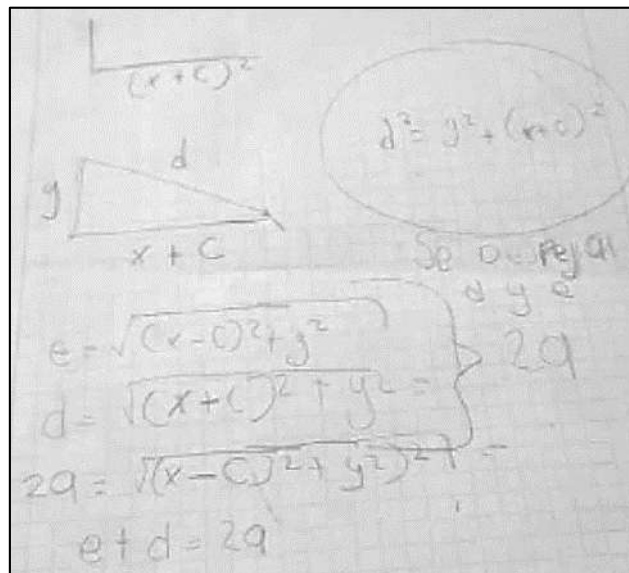 (x+C)²
d²= y²+(x+C)²
d
y
x + C
Se Despejan
d y e
e = √(x-C)²+y²
2a
d= √(x+C)²+y² =
2a = √(x-C)²+y²)²+ =
e+d=2a